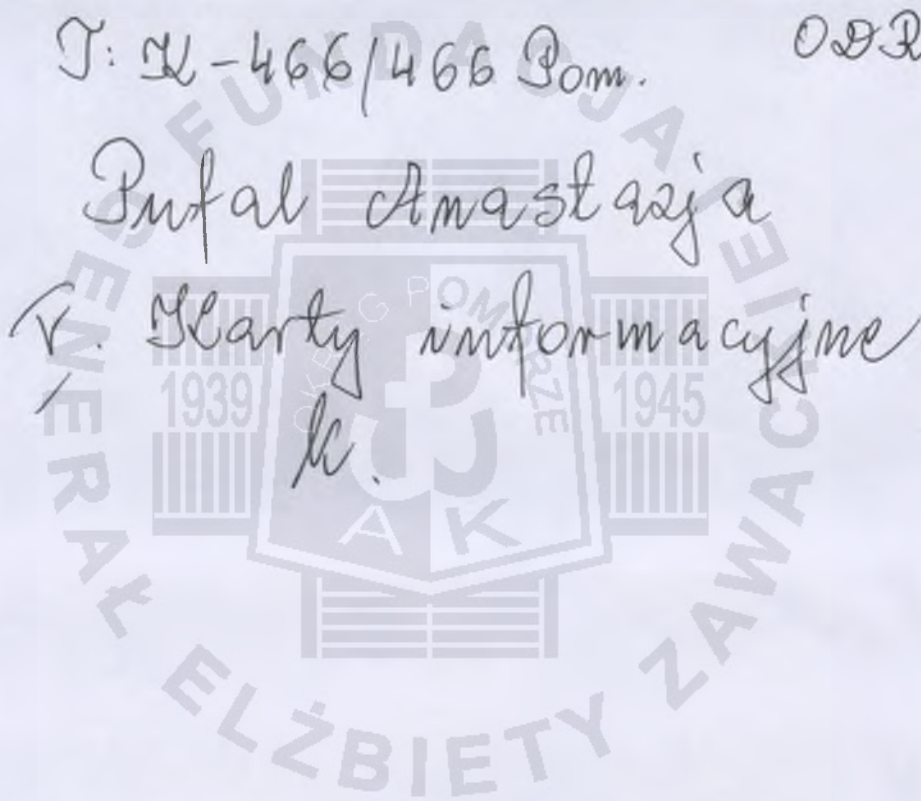 T: K-466/466 Pom. ODR
Pufal Anastazja
V. Karty informacyjne
k.
FUNDACJA GENERAŁ ELŻBIETY ZAWACKIEJ
OKRĘG POMORZE
1939 1945
A K